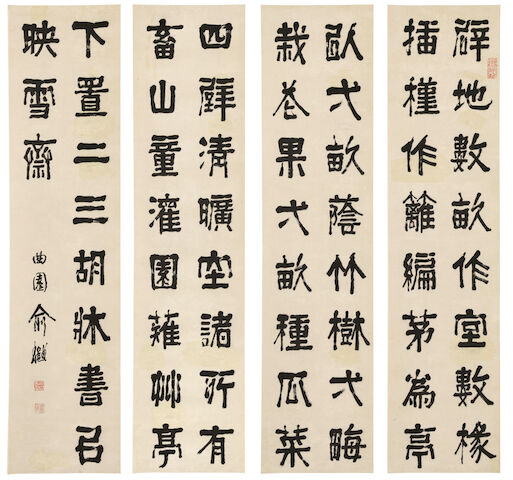 辟地數畝作室數椽
插槿作籬編茅為亭
以弌畝蔭竹樹弌畮
栽花果弌畝種瓜菜
四壁清曠空諸所有
畜山童灌園薙艸亭
下置二三胡牀書名
映雪齋
曲園俞樾